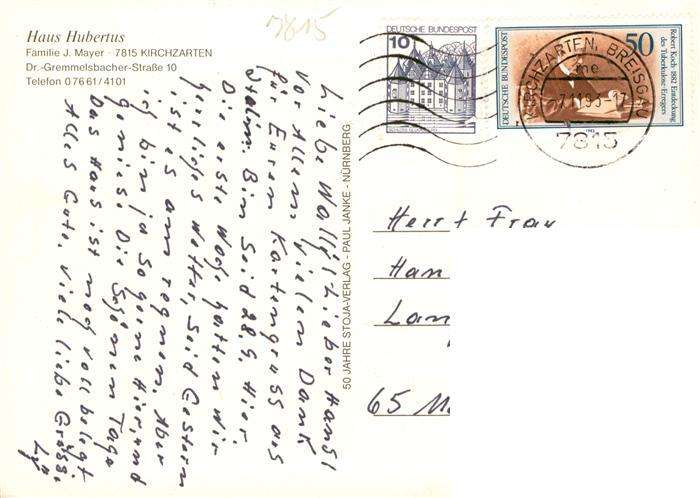 Haus Hubertus
Familie J. Mayer · 7815 KIRCHZARTEN
Dr.-Gremmelsbacher-Straße 10
Telefon 0 76 61 / 4101
7815
DEUTSCHE BUNDESPOST
10
DEUTSCHE BUNDESPOST
50
Robert Koch 1882 Entdeckung
des Tuberkulose-Erregers
KIRCHZARTEN, BREISGAU
7815
Liebe Wally, Lieber Hansl
vor Allem vielen Dank
für Euren Kartengruss aus
Bin seid 28.9. hier.
Die erste Woche hatten wir
herrliches Wetter, seid Gestern
ist es am regnen. Aber
ich bin ja so gerne hier, und
geniese Die schönen Tage
Das Haus ist noch voll belegt
Alles Gute, viele liebe Grüsse
50 JAHRE STOJA-VERLAG - PAUL JANKE - NÜRNBERG
Herr + Frau
Han
Lan
65 M